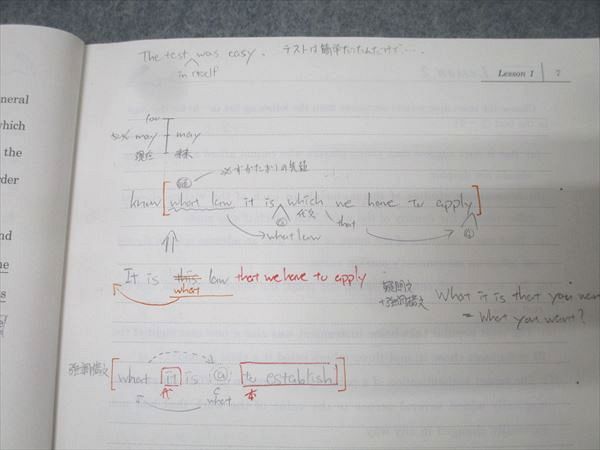 The test was easy. テストは簡単だったんだけど....
in itself
Lesson 1 7
neral
which
the
rder
nd
ne
s
e
low
may may
現在 未来
know [what law it is which we have to apply]
代名 that
what law
It is this law that we have to apply
what
疑問文
+強調構文
What it is that you wan
= What you want?
強調構文
[what it is ⓐ to establish]
C
what